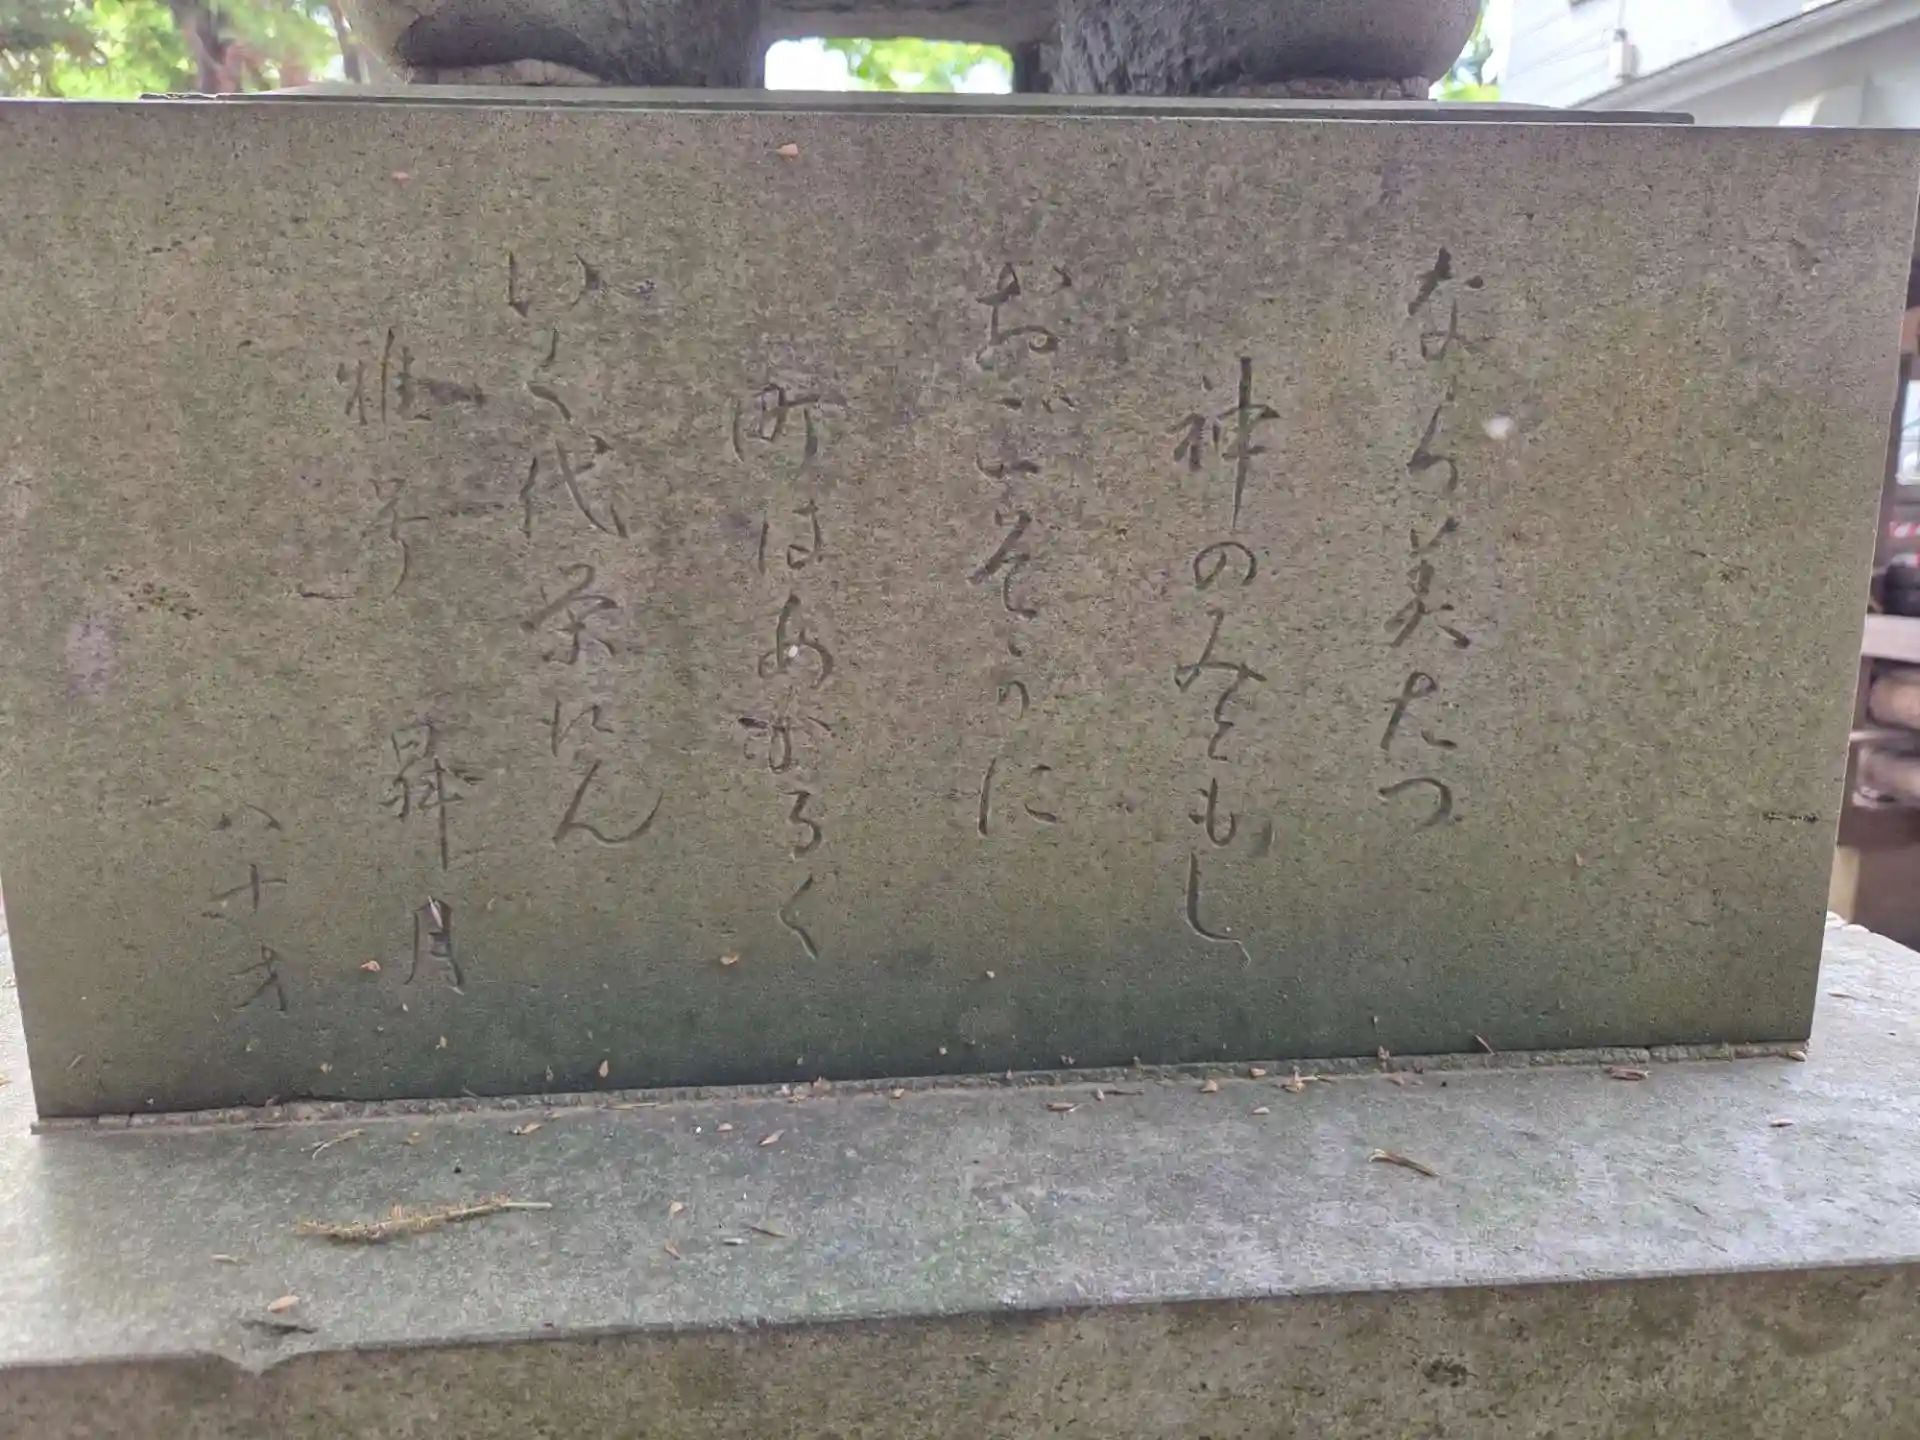 なら美たつ
神のみともし
おごそかに
町はあかるく
いく代栄江ん
雅号 曻月
八十才